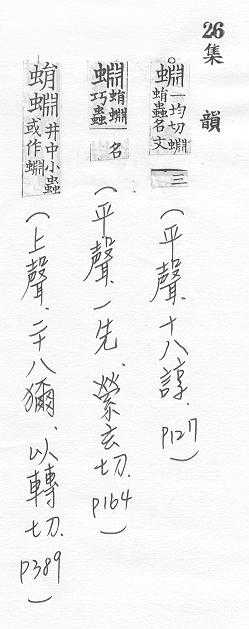 26 集韻
蜵 一均切蜵蜎蟲名文 三 (平聲、十八諄、p127)
蜵 蜎蜵巧蟲名 (平聲、一先、縈玄切 p164)
蜎蜵 井中小蟲或作蜵 (上聲、二十八獮、以轉切 p389)